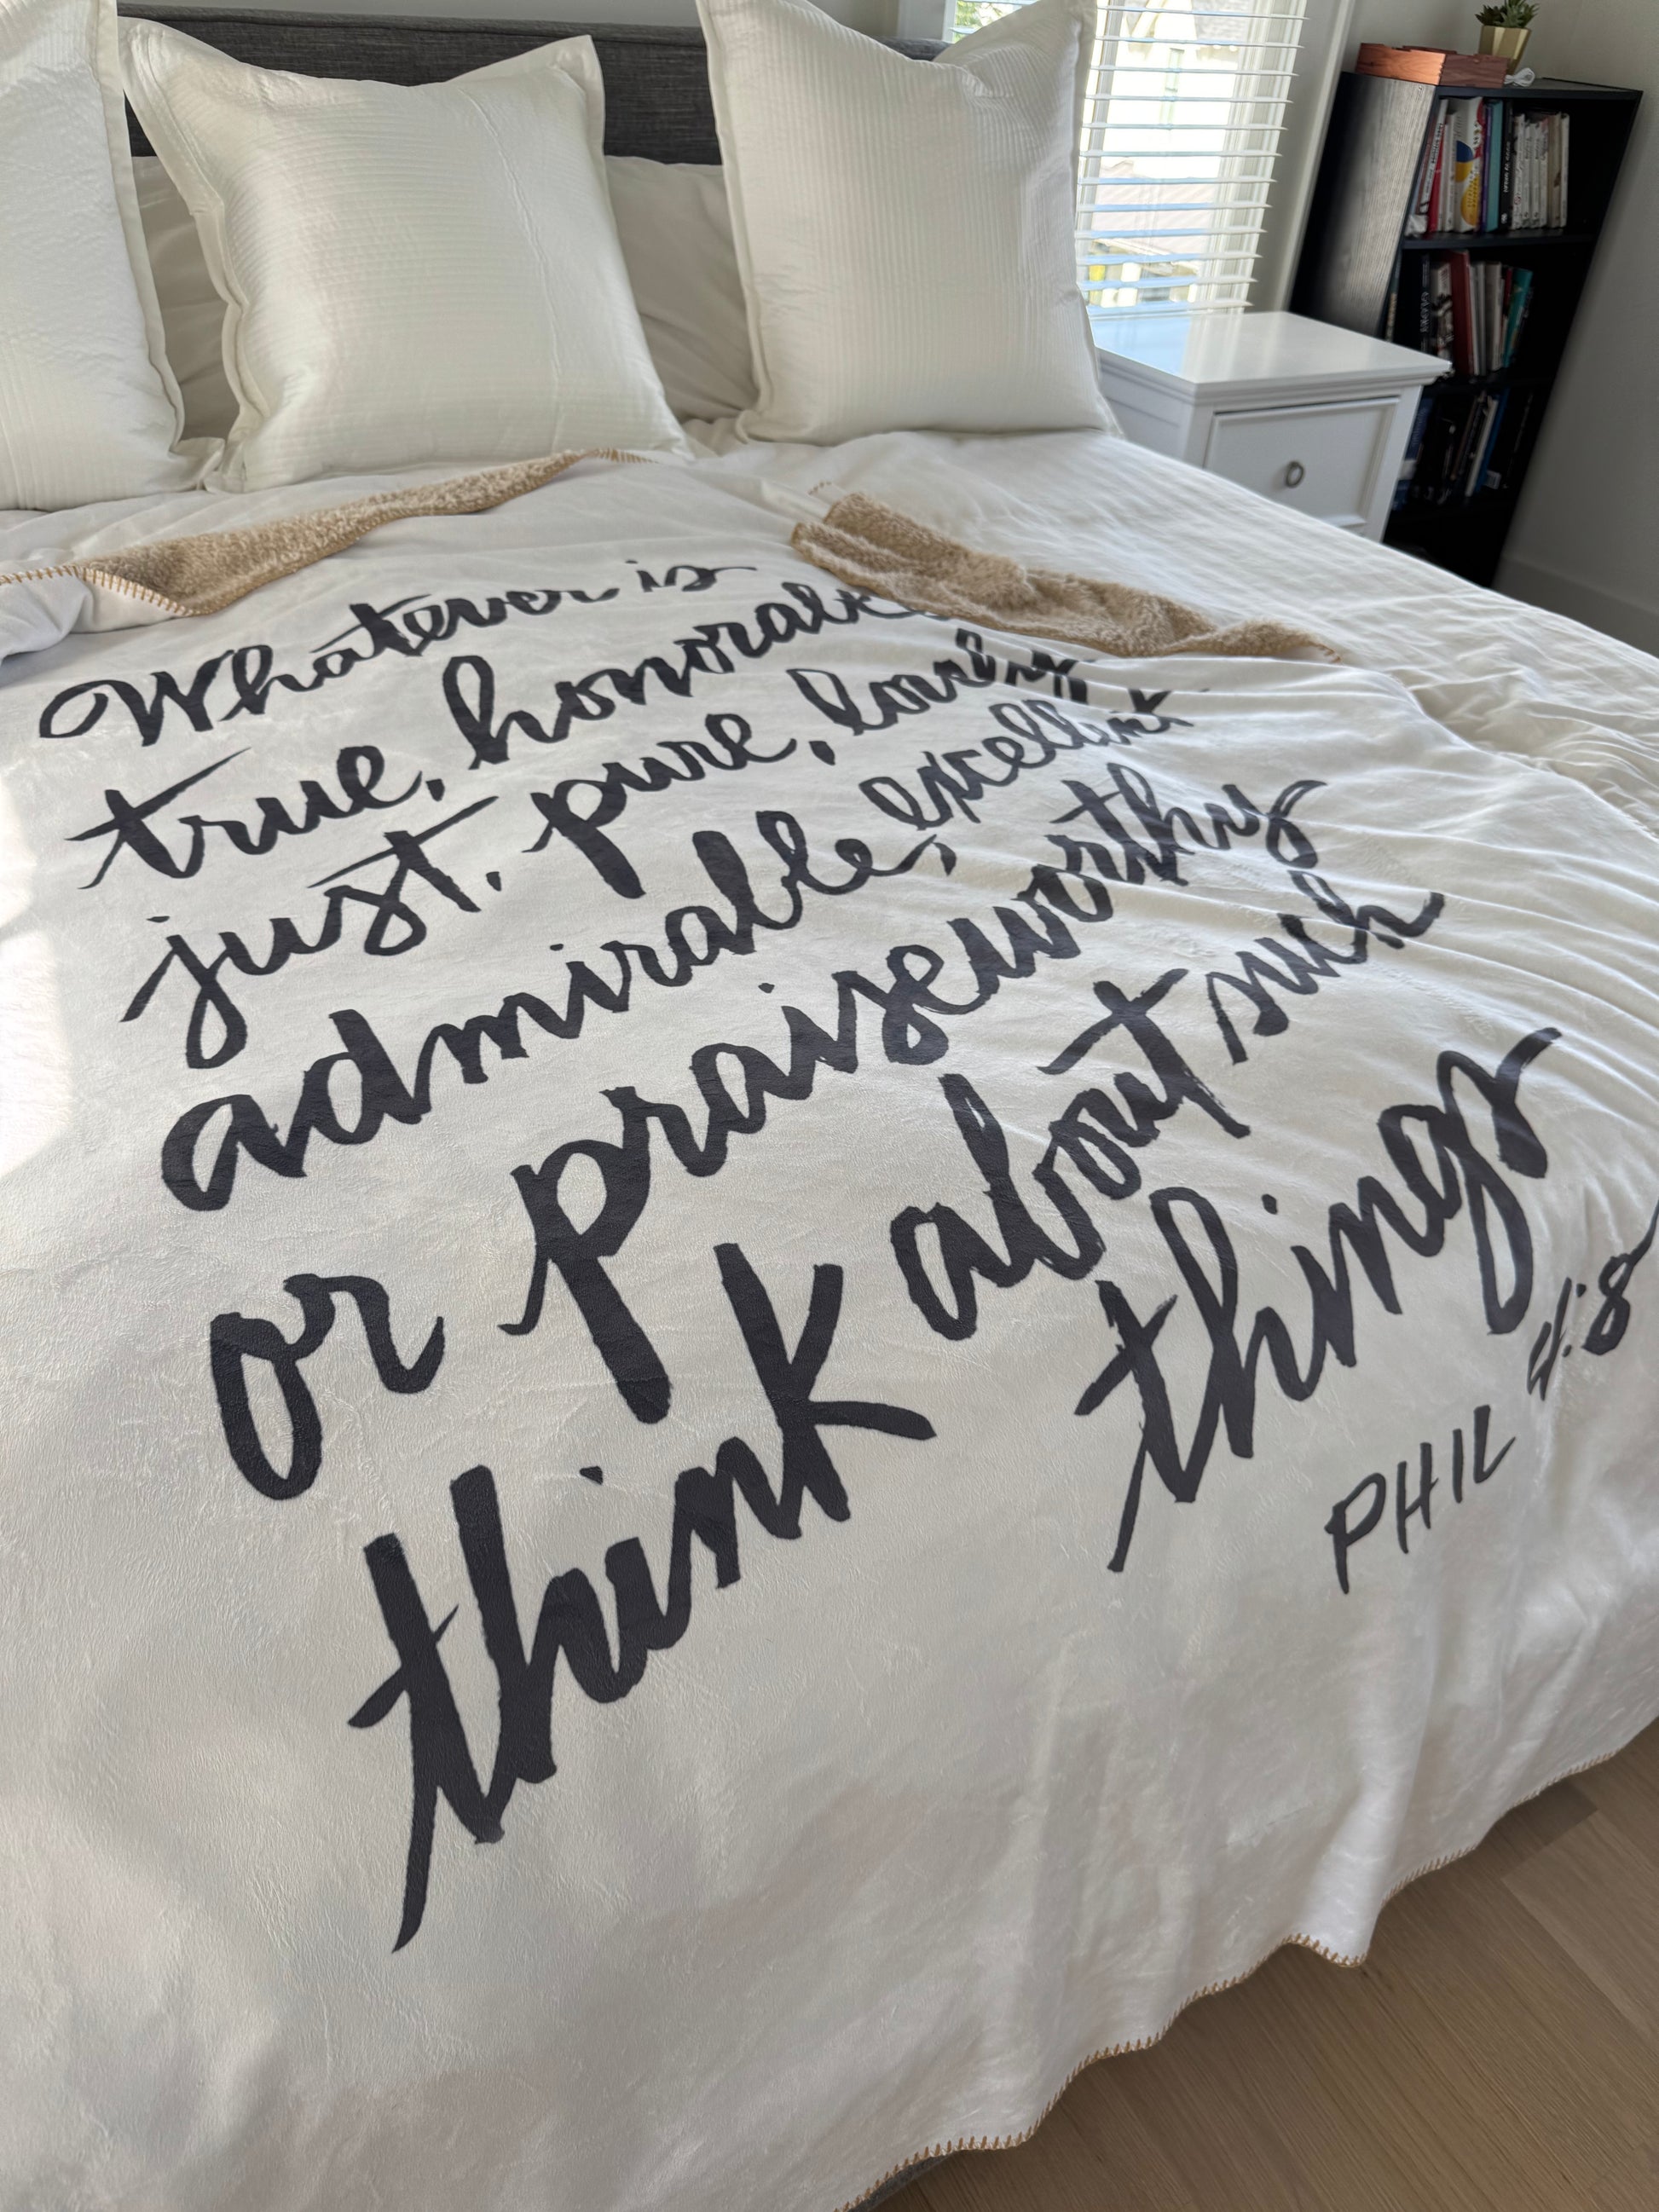 Whatever is
true, honorable
just, pure, lovely
admirable, excellent
or praiseworthy
think about such
things
PHIL 4:8